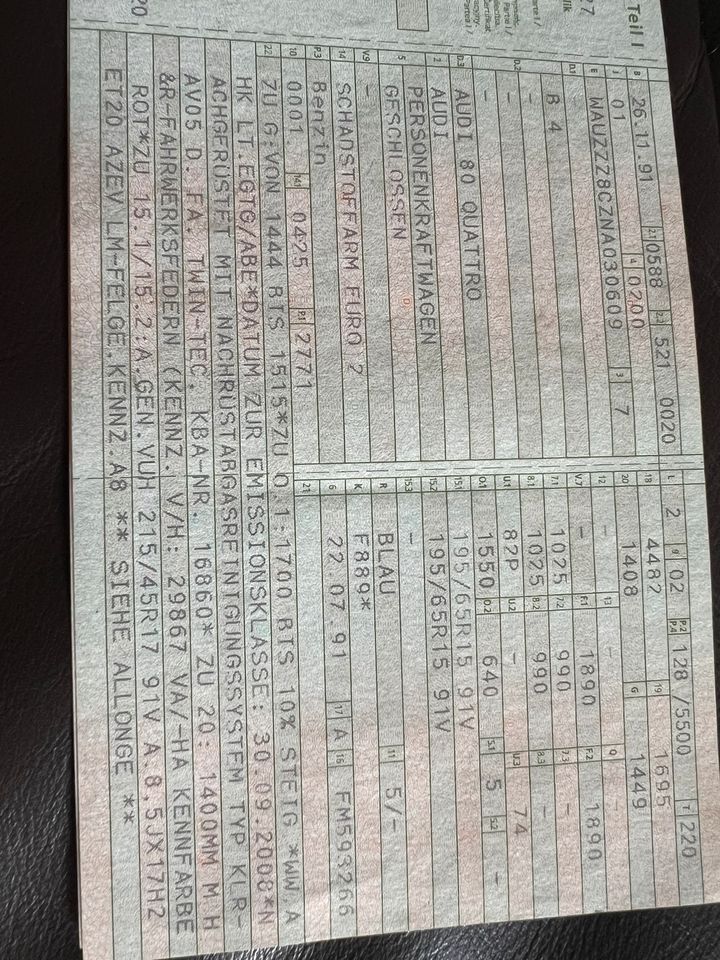 Teil I
B 26.11.91 2.1 0588 2.2 521 0020
J 01 4 0200 3 7
E WAUZZZ8CZNA030609
D.1 -
D.2 B 4
-
-
-
D.3 AUDI 80 QUATTRO
2 AUDI
5 PERSONENKRAFTWAGEN
GESCHLOSSEN
V.9 -
14 SCHADSTOFFARM EURO 2
P.3 Benzin
10 0001 14.1 0425 P.1 2771
L 2 9 02 P.2 P.4 128 /5500 T 220
18 4482 19 1695
20 1408 G 1449
12 - 13 - Q -
V.7 - F.1 1890 F.2 1890
7.1 1025 7.2 990 7.3 -
8.1 1025 8.2 990 8.3 -
U.1 82P U.2 - U.3 74
O.1 1550 O.2 640 S.1 5 S.2 -
15.1 195/65R15 91V
15.2 195/65R15 91V
15.3 -
R BLAU 11 5/-
K F889*
6 22.07.91 17 A 16 FM593266
21
22 ZU G:VON 1444 BIS 1515*ZU O.1:1700 BIS 10% STEIG *WW.A
HK LT.EGTG/ABE*DATUM ZUR EMISSIONSKLASSE: 30.09.2008*N
ACHGERÜSTET MIT NACHRÜSTABGASREINIGUNGSSYSTEM TYP KLR-
AV05 D. FA. TWIN-TEC. KBA-NR. 16860* ZU 20: 1400MM M.H
&R-FAHRWERKSFEDERN (KENNZ. V/H: 29867 VA/-HA KENNFARBE
ROT*ZU 15.1/15.2:A.GEN.VUH 215/45R17 91V A.8,5JX17H2
ET20 AZEV LM-FELGE,KENNZ.A8 ** SIEHE ALLONGE **